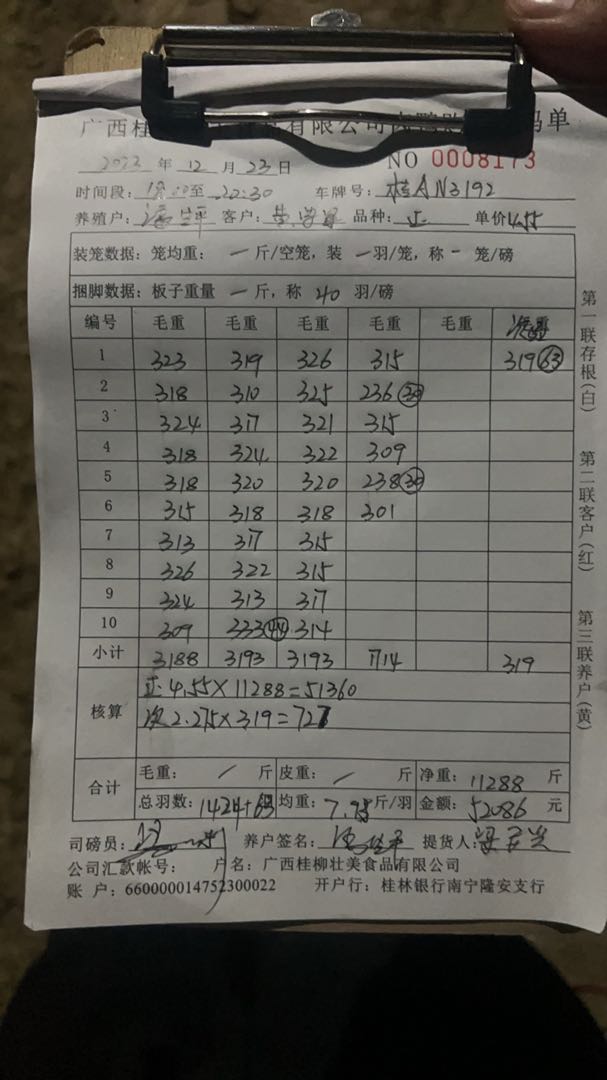 广西桂 有限公司肉鸭 码单
2022 年 12 月 23 日 NO 0008173
时间段: 至 22:30 车牌号: 桂AN3192
养殖户: 客户: 品种: 正 单价4.55
装笼数据: 笼均重: 一 斤/空笼, 装 一 羽/笼, 称 一 笼/磅
捆脚数据: 板子重量 一 斤, 称 40 羽/磅
编号 毛重 毛重 毛重 毛重 毛重
1 323 319 326 315 319 63
2 318 310 325 236 30
3 324 317 321 315
4 318 324 322 309
5 318 320 320 238 30
6 315 318 318 301
7 313 317 315
8 326 322 315
9 324 313 317
10 309 333 44 314
小计 3188 3193 3193 1714 319
核算 正 4.55×11288=51360
次 2.275×319=727
合计 毛重: / 斤 皮重: / 斤 净重: 11288 斤
总羽数: 1424+63 均重: 7.95 斤/羽 金额: 52086 元
司磅员: 养户签名: 提货人:
公司汇款帐号: 户名: 广西桂柳壮美食品有限公司
账 户: 660000014752300022 开户行: 桂林银行南宁隆安支行
第一联存根(白)
第二联客户(红)
第三联养户(黄)